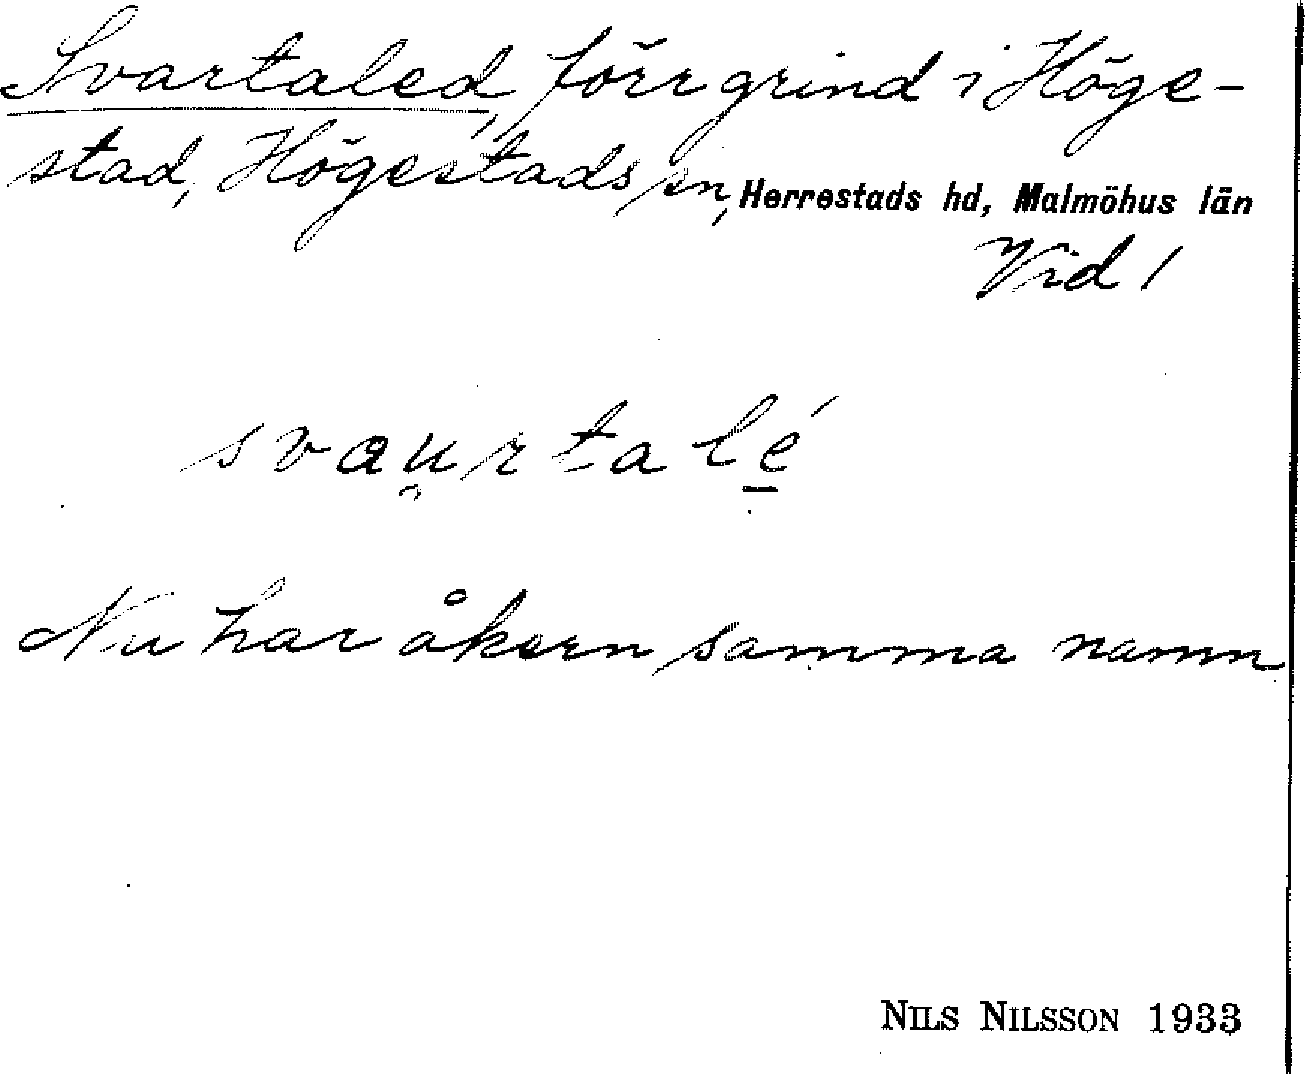 Svartaled, förr grind i Höge-
stad, Högestads sn, Herrestads hd, Malmöhus län
Vid 1
svau̯rtalé̱
Nu har åkern samma namn
NILS NILSSON 1933